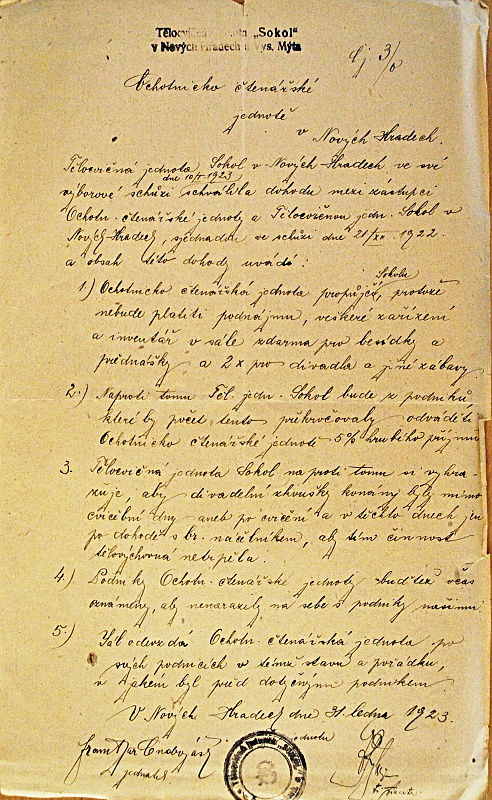 Tělocvičná jednota „Sokol“
v Nových Hradech u Vys. Mýta
Čj 3/0
Ochotnicko čtenářské
jednotě
v Nových Hradech.
Tělocvičná jednota Sokol v Nových Hradech ve své
dne 10/I 1923
výborové schůzi schválila dohodu mezi zástupci
Ochotn. čtenářské jednoty a Tělocvičnou jedn. Sokol v
Nových Hradech, sjednadou ve schůzi dne 21/XII 1922.
a obsah této dohody uvádí:
Sokolu
1.) Ochotnicko čtenářská jednota propůjčí, protože
nebude platiti podnájmu, veškeré zařízení
a inventář v sále zdarma pro besídky a
přednášky a 2x pro divadla a jiné zábavy.
2.) Naproti tomu Těl. jedn. Sokol bude z podniků
které by počet tento překročovaly odváděti
Ochotnicko čtenářské jednotě 5% hrubého příjmu
3. Tělocvičná jednota Sokol naproti tomu si vyhra-
zuje, aby divadelní zkoušky konány byly mimo
cvičební dny aneb po cvičení a v těchto dnech jen
po dohodě s br. náčelníkem, aby tím činnost
tělovýchovná netrpěla.
4.) Podniky Ochotn. čtenářské jednoty buďtež včas
oznámeny, aby nenarazily na sebe s podniky našimi.
5.) Sál odevzdá Ochotn. čtenářská jednota po
svých podnicích v témž stavu a pořádku,
v jakém byl před dotyčným podnikem.
V Nových Hradech dne 31. ledna 1923.
jednatel